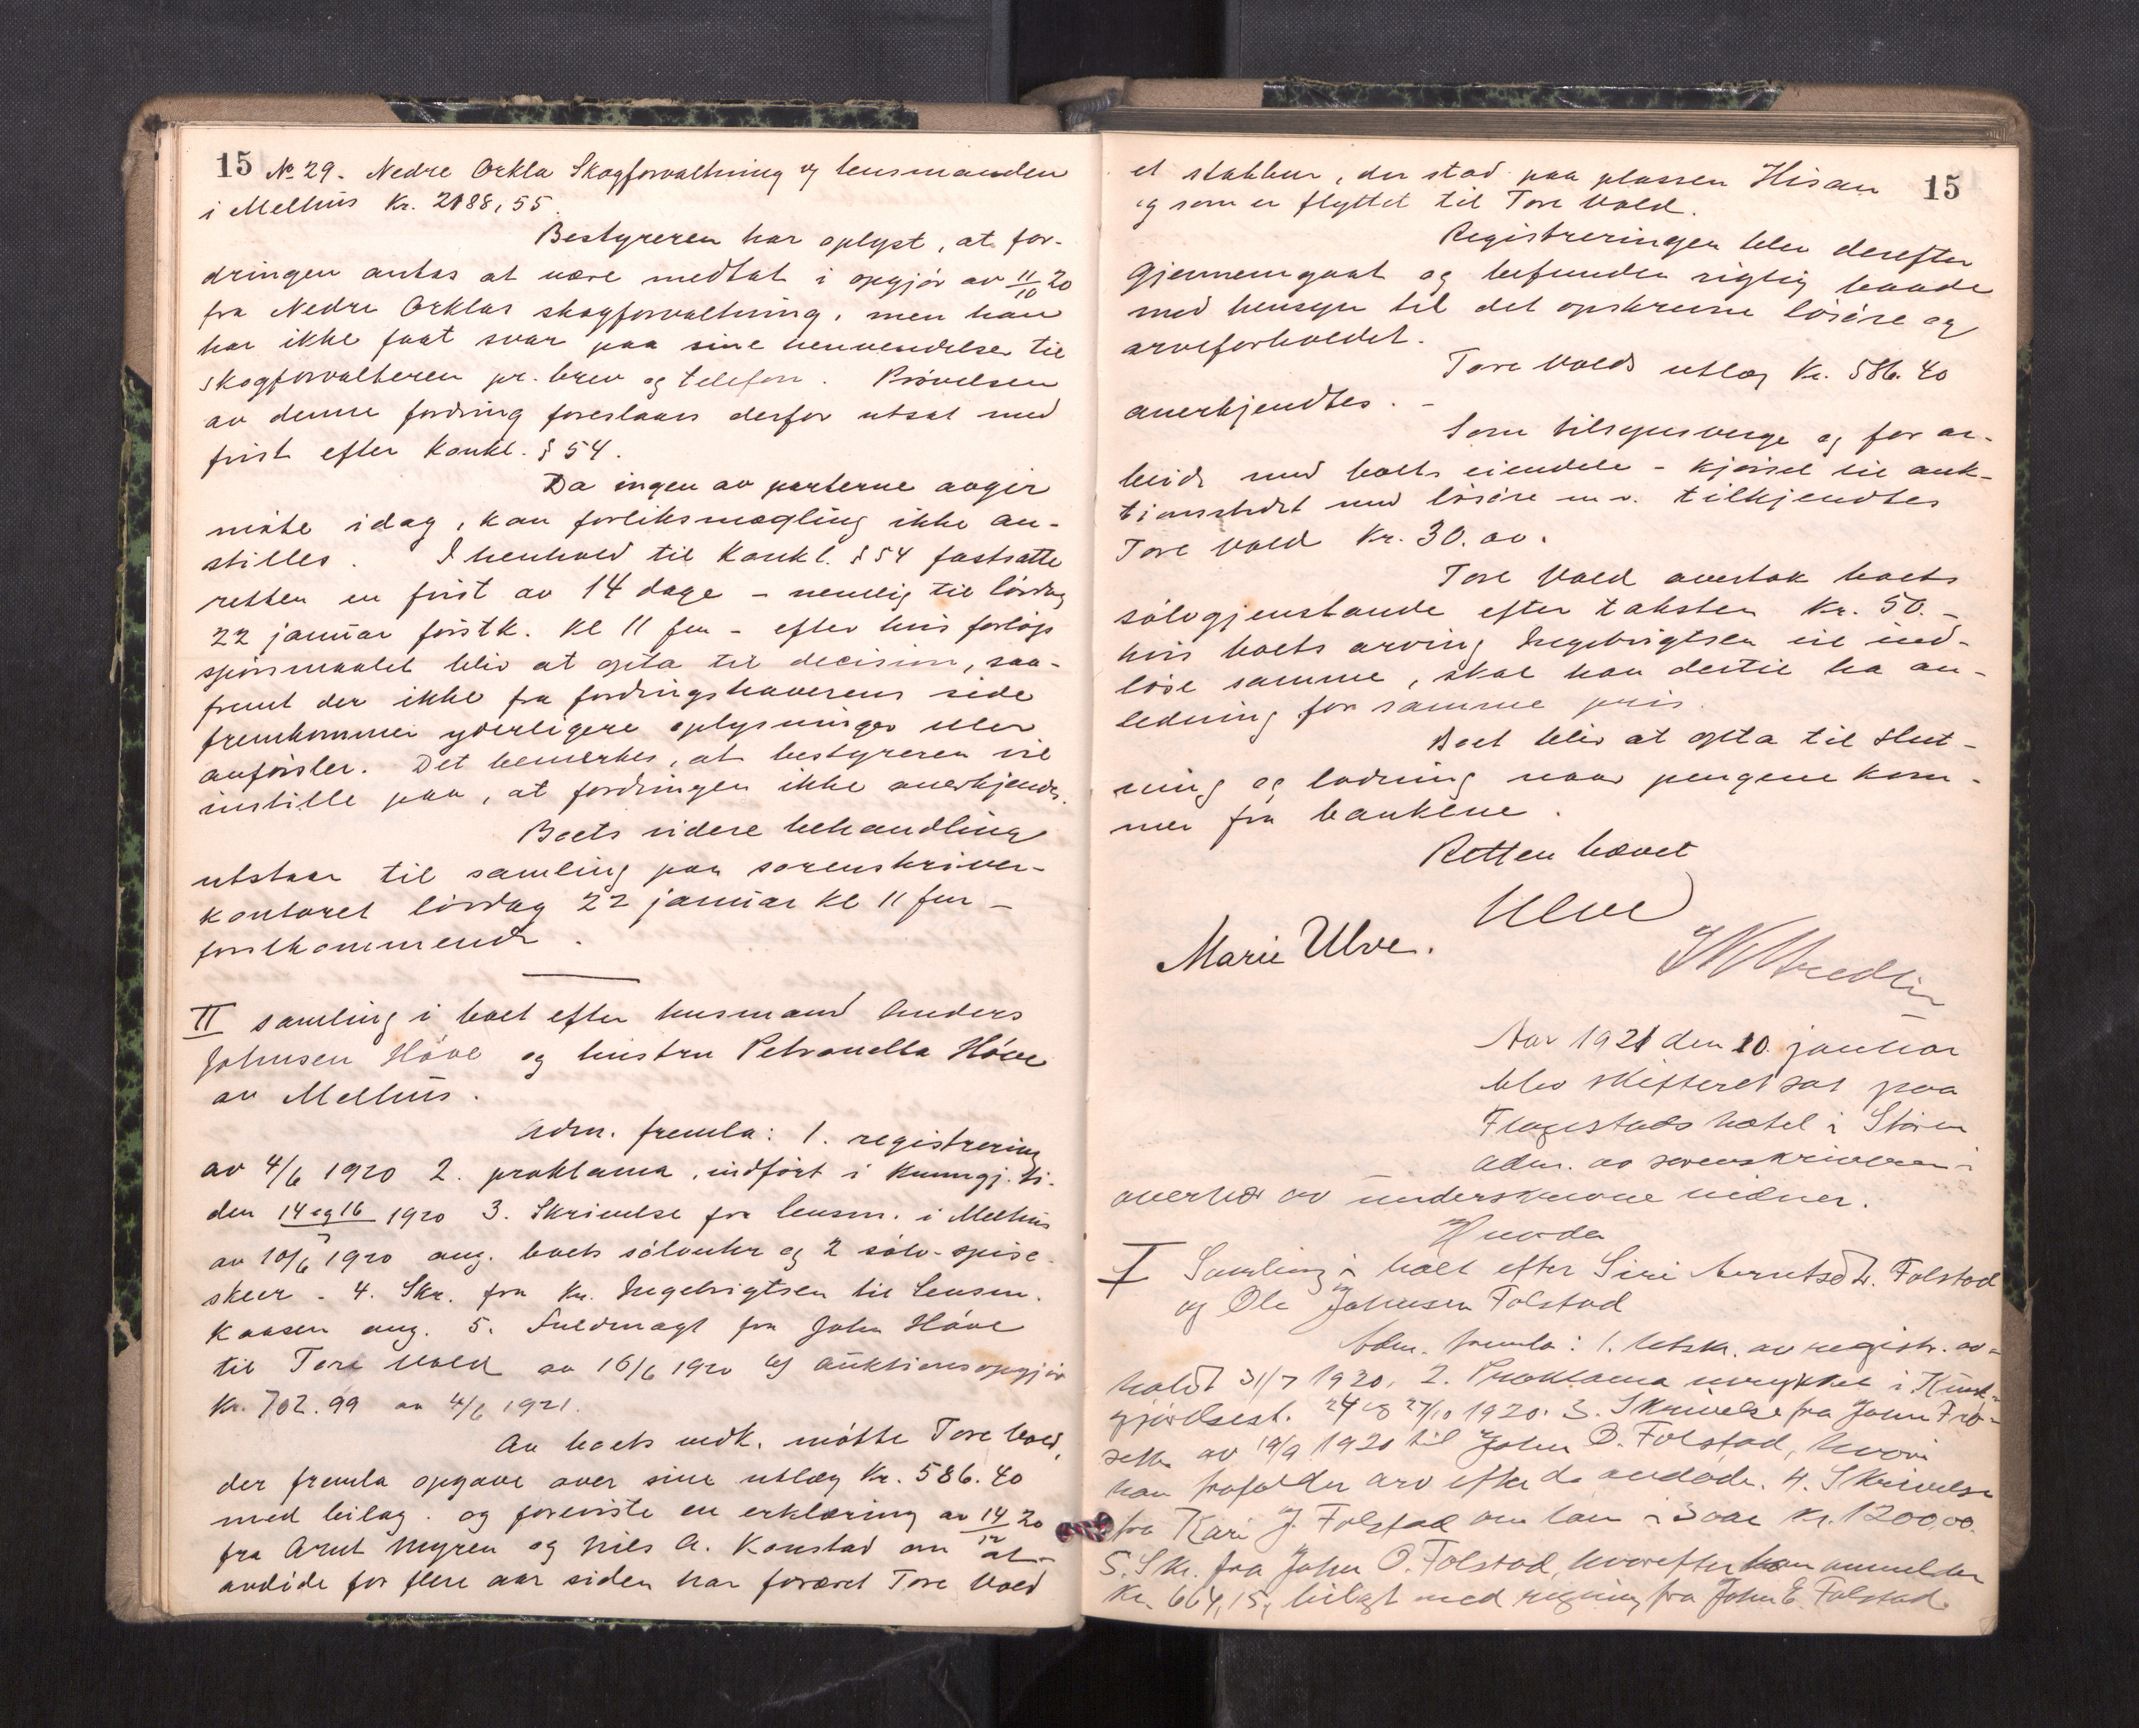 15 No 29. Nedre Orkla Skogforvaltning og lensmanden
i Melhus Kr. 2188,55.
Bestyreren har oplyst, at for-
dringen antas at være medtat i opgjör av 11/10 20
fra Nedre Orklas skogforvaltning, men han
har ikke faat svar paa sine henvendelser til
skogforvalteren pr. brev og telefon. Prövelsen
av denne fordring foreslaaes derfor utsat med
frist efter Konkl. § 54.
Da ingen av parterne avgir
möte idag, kan forliksmægling ikke an-
stilles. I henhold til Konkl. § 54 fastsatte
retten en frist av 14 dage - nemlig til lördag
22 januar förstk. Kl 11 fm - efter hvis forlöp
spörsmaalet blir at opta til decision, saa-
fremt der ikke fra fordringshaverens side
fremkommer yderligere oplysninger eller
anförsler. Det bemerkes, at bestyreren vil
instille paa, at fordringen ikke anerkjendes.
Boets videre behandling
utstaar til samling paa sorenskriver-
kontoret lördag 22 januar Kl 11 fm -
förstkommende.
II samling i boet efter husmand Anders
Johnsen Höve og hustru Petronella Höve
av Melhus.
Adm. fremla: 1. registrering
av 4/6 1920 2. proklama, indfört i Kunngj. ti-
den 14 og 16/7 1920 3. Skrivelse fra lensm. i Melhus
av 10/6 1920 ang. boets sölvuhr og 2 sölv-spise
skeer - 4. Skr. fra Kr. Ingebrigtsen til Lensm.
Kaasen ang. 5. Fuldmagt fra John Höve
til Tore Vold av 16/6 1920 og auktionsopgjör
Kr. 702.99 av 4/6 1921.
Av boets vedk. mötte Tore Vold,
der fremla opgave over sine utlæg Kr. 586.40
med bilag. og foreviste en erklæring av 14/12 20
fra Arnt Myren og Nils A. Konstad om at
avdöde for flere aar siden har foræret Tore Vold
et stabbur, der stod paa plassen Hisan 15
og som er flyttet til Tore Vold.
Registreringen blev derefter
gjennemgaat og befunden rigtig baade
med hensyn til det opskrevne lösöre og
arveforholdet.
Tore Volds utlæg Kr. 586.40
anerkjendtes. -
Som tilsynsverge og for ar-
beide med boets eiendele - kjörsel til auk-
tionsstedet med lösöre m.v. tilkjendtes
Tore Vold Kr. 30.00.
Tore Vold overtok boets
sölvgjenstande efter taksten Kr. 50.-
hvis boets arving Ingebrigtsen vil ind-
löse samme, skal han dertil ha an-
ledning for samme pris.
Boet blir at opta til slut-
ning og lodning naar pengene kom-
mer fra bankene.
Retten hævet
Ulve
Marie Ulve.
Aar 1921 den 10. januar
blev skifteret sat paa
Flagestads hotel i Stören
adm. av sorenskriveren i
overvær av underskrevne vidner.
Hvorda
I Samling i boet efter Siri Arntsdt. Folstad
og Ole Johnsen Folstad
Adm. fremla: 1. Utskr. av registr. av-
holdt 31/7 1920. 2. Proklama inrykket i Kund-
gjörelsest. 24 og 27/10 1920. 3. Skrivelse fra John Frö-
seth av 19/9 1920 til John O. Folstad, hvori
han frafalder arv efter de avdöde. 4. Skrivelse
fra Kari J. Folstad om lön i 3 aar Kr. 1200,00.
5. Skr. fra John O. Folstad, hvorefter han anmelder
Kr. 664,15, bilagt med regning fra John E. Folstad.